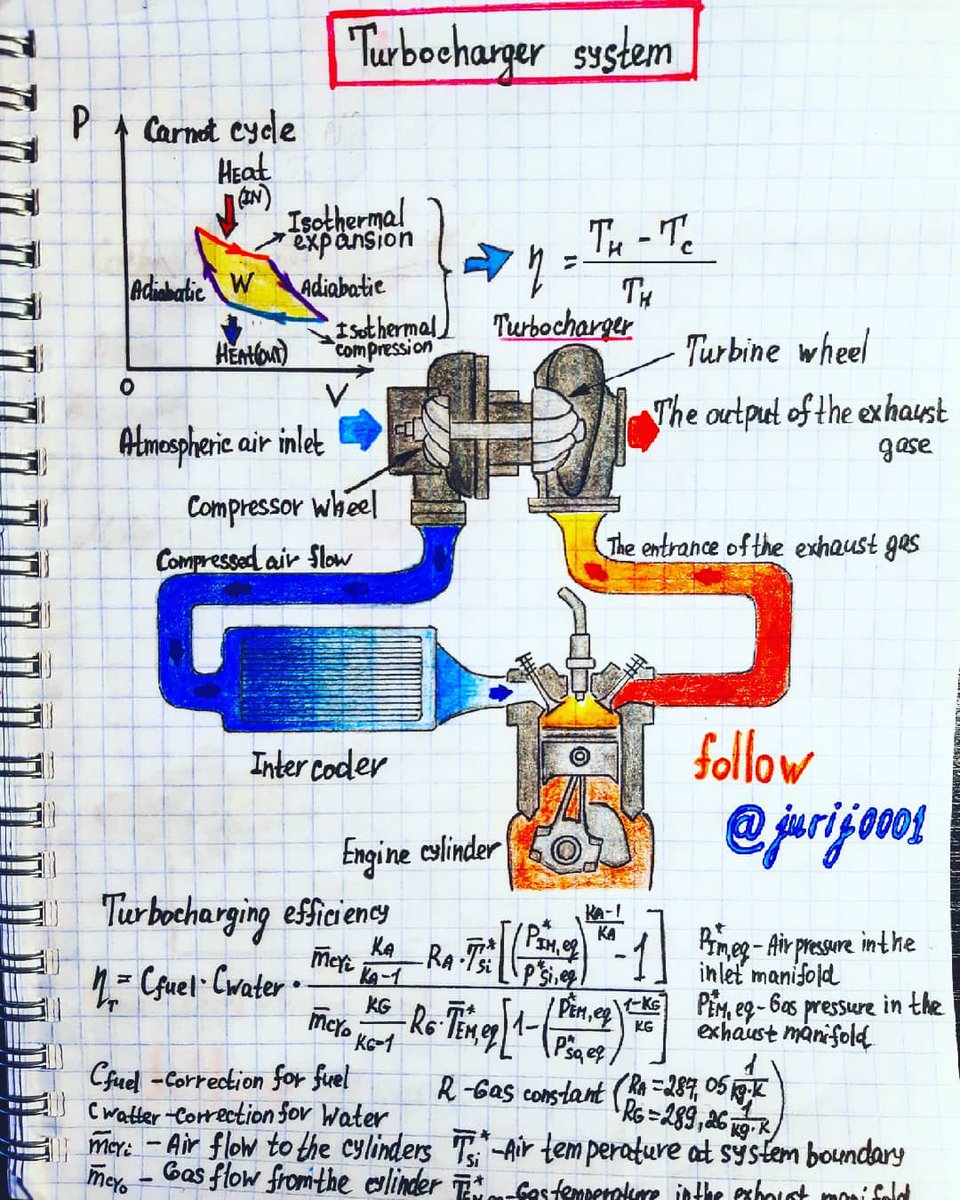 Turbocharger system
P
Carnot cycle
Heat
(IN)
Isothermal
expansion
Adiabatic
W
Adiabatic
Isothermal
compression
HEAT(OUT)
O
V
η = (T_H - T_C) / T_H
Turbocharger
Turbine wheel
The output of the exhaust
gase
Atmospheric air inlet
Compressor wheel
Compressed air flow
The entrance of the exhaust gas
Intercooler
Engine cylinder
follow
@jurij0001
Turbocharging efficiency
η_T = Cfuel · Cwater · (m̅cyi K_A/(K_A-1) R_A · T̅*_si [(P*_IM,eq / P*_si,eq)^((K_A-1)/K_A) - 1]) / (m̅cyo K_G/(K_G-1) R_G · T̅*_EM,eq [1 - (P*_EM,eq / P*_so,eq)^((1-K_G)/K_G)])
P*_IM,eq - Air pressure in the
inlet manifold
P*_EM,eq - Gas pressure in the
exhaust manifold
Cfuel - correction for fuel
Cwatter - correction for water
R - Gas constant (R_A = 287,05 1/kg·K
R_G = 289,26 1/kg·K)
m̅cyi - Air flow to the cylinders
T̅*_si - Air temperature at system boundary
m̅cyo - Gas flow from the cylinder
Gas temperature in the exhaust manifold